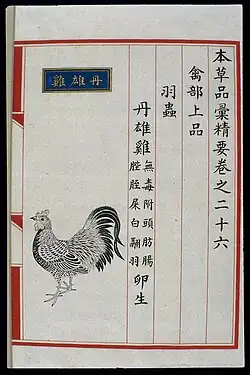 本草品彙精要卷之二十六
禽部上品
羽蟲
丹雄雞無毒附頭肪腸
腔脛屎白翮羽卵生
丹雄雞